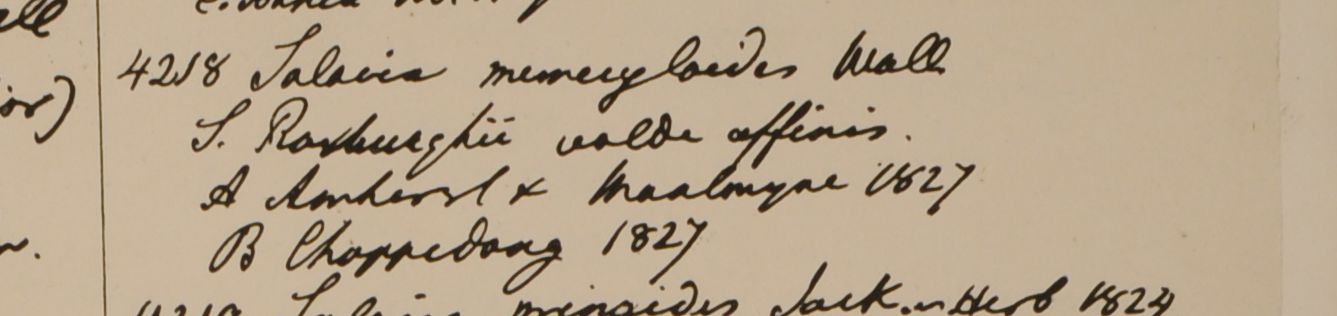 ell
4218 Salacia memecyloides Wall
ior)
S. Roxburghii valde affinis.
A Amherst & Moalmyne 1827
B Chappedong 1827
4219 Salacia prinoides Jack in Herb 1824